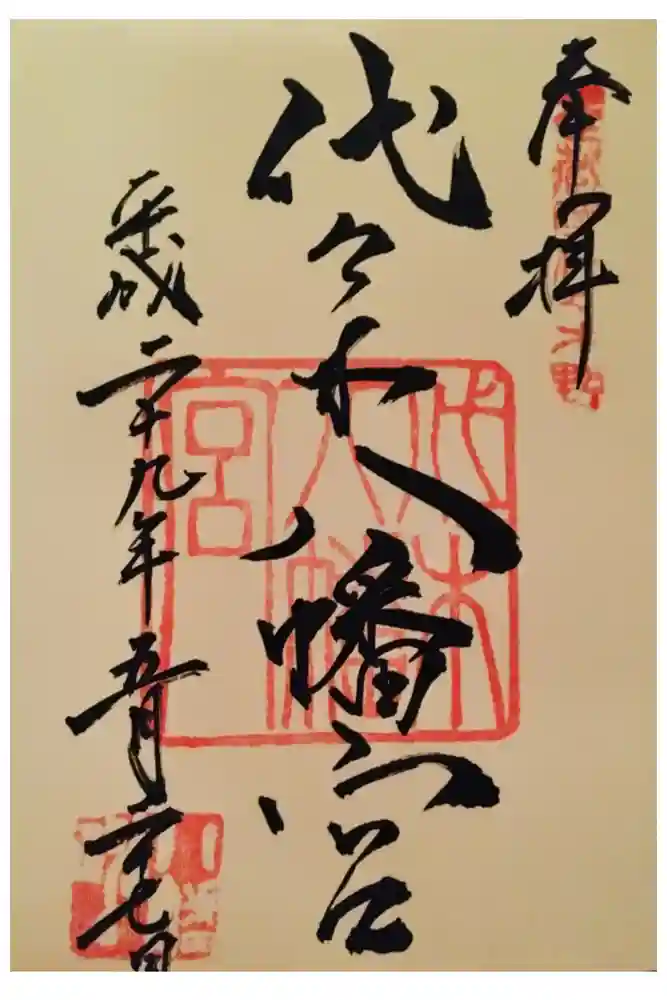 奉拝
代々木八幡宮
平成二十九年五月二十七日
代々木八幡宮